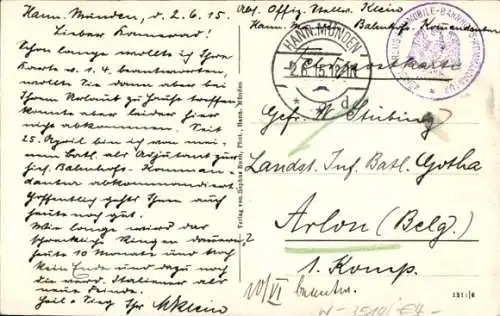 Hann. Münden, d. 2.6.15.
Lieber Kamerad!
Schon lange wollte ich Ihre
Karte v. 1.4. beantworten,
wollte Sie dann aber bei
Ihrem Urlaub zu Hause treffen,
konnte aber leider hier
nicht abkommen. Seit
25. April bin ich von meinem
Batl. als Adjutant zur
hies. Bahnhofs-Komman-
dantur abkommandiert.
Hoffentlich geht's Ihnen auf
heute noch gut.
Wie lange wird das
schreckliche Ringen dauern?
heute 10 Monate und noch
kein Ende und dazu noch
die verd. Italiener als
neue Feinde.
Heil u. Sieg Ihr Klein
Verlag von Sophus Buch, Phot., Hann. Münden
Abs. Offiz. Klein
Hann. M. Bahnhofs-Komandantur
HANN. MÜNDEN
2.6.15.12-1N
* * d
MOBILE-BAHNHOFS
Feldpostkarte
Gefr. W. Stübing
Landst. Inf. Batl. Gotha
Arlon (Belg.)
1. Komp.
10/VI beantw.